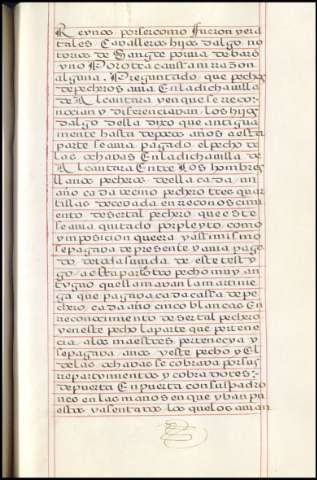 Reynos por ser como fueron vera
tales Cavalleros hijos dalgo no
torios de Sangre por via de baro
y no Por otra caussa ni rrazon
alguna. Preguntado que pechos
de pecheros avia En la dicha villa
de Alcantara y en que se rreco
nocian y diferenciavan los hijos
dalgo della dixo que antigua
mente hasta de pocos años a esta
parte se avia pagado el pecho de
las ochavas En la dicha villa de
Alcantara Entre Los hombres
llanos pecheros della cada un
año cada vecino pechero tres quar
tillas de cevada en reconoscimi
ento de ser tal pechero que este
se avia quitado por pleyto como
ymposicion que era y assimismo
se pagava de presente y avia paga
do de toda su vida de este testy
go a esta parte otro pecho muy an
tyguo que llamavan la martinie
ga que pagava cada cassa de pe
chero cada año cinco blancas En
Reconocimiento de ser tal pechero
y en este pecho la parte que pertenec
cia a los maestres pertenecya y
se pagava anos y este pecho y El
de las ochavas se cobrava por sus
repartymientos y cobradores
de puerta En puerta con su padro
nco en las manos en que yban pu
estos y asentados los que los avian